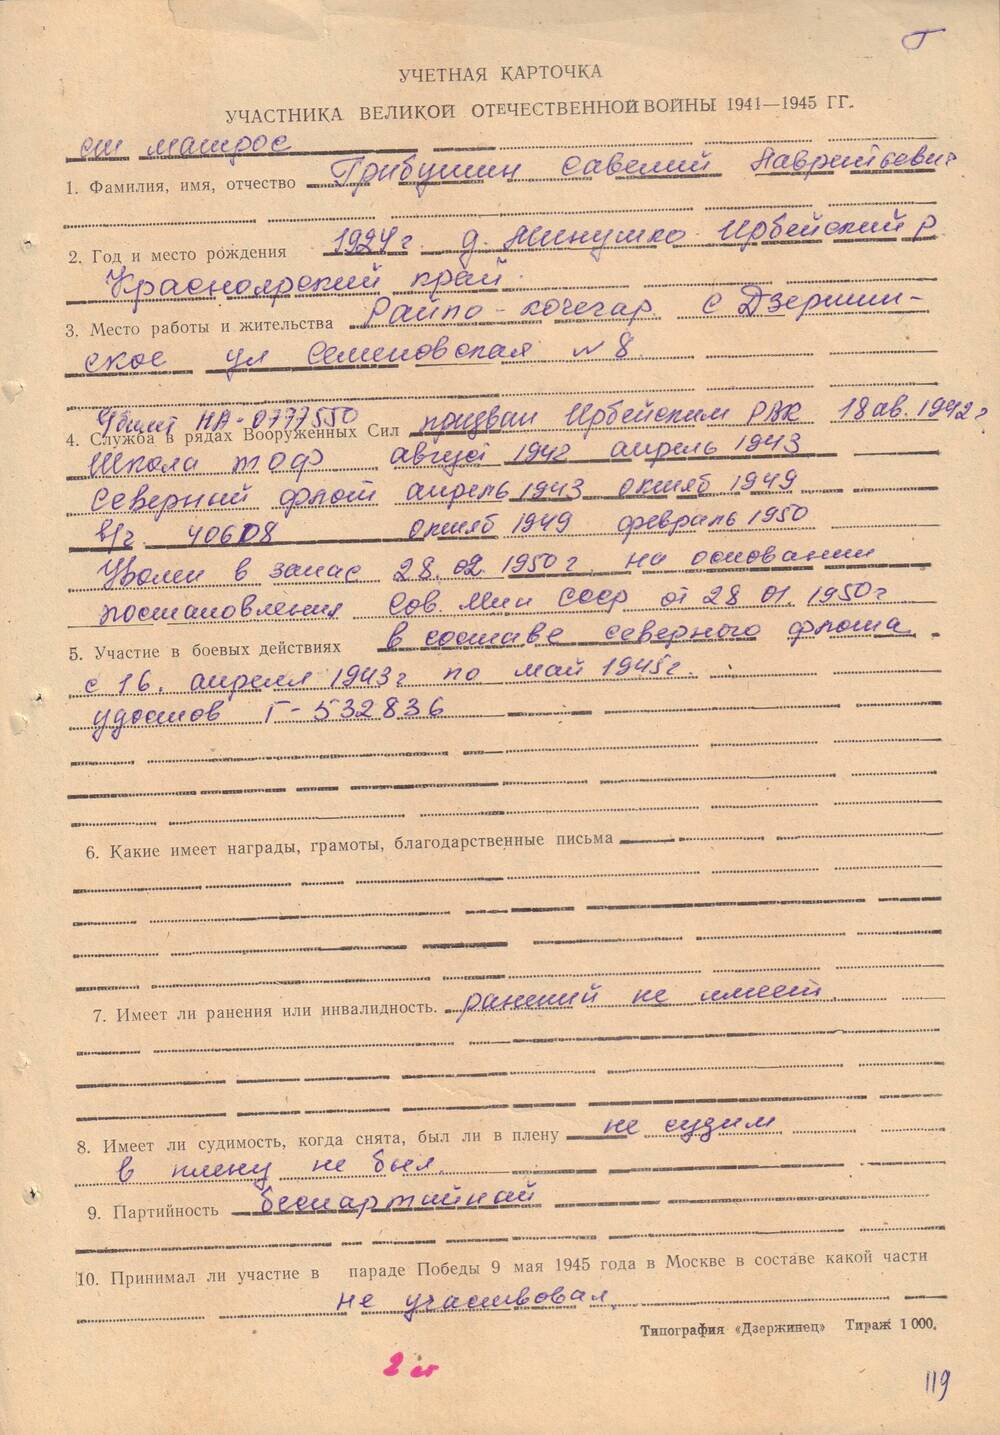 Г
УЧЕТНАЯ КАРТОЧКА
УЧАСТНИКА ВЕЛИКОЙ ОТЕЧЕСТВЕННОЙ ВОЙНЫ 1941—1945 ГГ.
ст матрос
1. Фамилия, имя, отчество Грибушин Савелий Лаврентьевич
2. Год и место рождения 1924 г. д. Минушко Ирбейский р.
Красноярский край.
3. Место работы и жительства Райпо - кочегар. с Дзержин-
ское ул Семеновская N 8.
Убилет НА-0777550
4. Служба в рядах Вооруженных Сил призван Ирбейским РВК 18 ав. 1942 г
Школа ТОФ август 1942 апрель 1943
Северный флот апрель 1943 октяб 1949
в/ч 40608 октяб 1949 февраль 1950
Уволен в запас 28.02.1950 г. на основании
постановления Сов. Мин СССР от 28.01.1950 г
5. Участие в боевых действиях в составе северного флота
с 16. апреля 1943 г по май 1945 г.
удостов Г-532836
6. Какие имеет награды, грамоты, благодарственные письма
7. Имеет ли ранения или инвалидность. ранений не имеет.
8. Имеет ли судимость, когда снята, был ли в плену не судим
в плену не был.
9. Партийность беспартийный
10. Принимал ли участие в параде Победы 9 мая 1945 года в Москве в составе какой части
не участвовал.
Типография «Дзержинец» Тираж 1 000.
2 ст
119